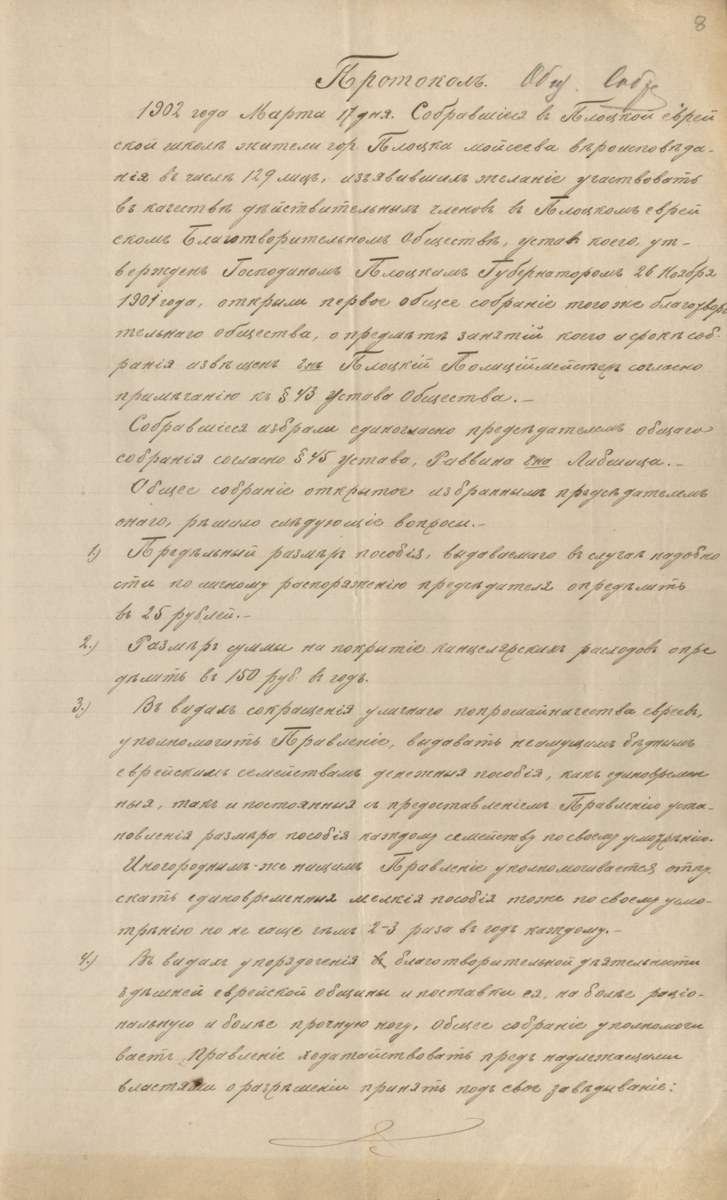 8
Протоколъ. Общ. Собр
1902 года Марта 17 дня. Собравшіеся въ Плоцкой еврей
ской школѣ жители гор. Плоцка мойсеева вѣроисповѣда-
нія въ числѣ 129 лицъ, изъявившихъ желаніе участвовать
въ качествѣ дѣйствительныхъ членовъ въ Плоцкомъ еврей
скомъ Благотворительномъ Обществѣ, уставъ коего, ут-
вержденъ Господиномъ Плоцкимъ Губернаторомъ 26 Ноября
1901 года, открыли первое общее собраніе того же благотвори
тельнаго общества, о предметѣ занятій коего и срокѣ соб-
ранія извѣщенъ Плоцкій Полиціймейстеръ согласно
примѣчанію къ § 43 Устава Общества. —
Собравшіеся избрали единогласно предсѣдателемъ общаго
собранія согласно § 45 устава, Раввина Либшица. —
Общее собраніе открытое избраннымъ предсѣдателемъ
онаго, рѣшило слѣдующіе вопросы. —
1) Предѣльный размѣръ пособія, выдаваемаго въ случаѣ надобно
сти по личному распоряженію предсѣдателя опредѣлить
въ 25 рублей. —
2.) Размѣръ суммы на покрытіе канцелярскихъ расходовъ опре
дѣлить въ 150 руб. въ годъ.
3.) Въ видахъ сокращенія уличнаго попрошайничества евреевъ,
уполномочить Правленіе, выдавать неимущимъ бѣднымъ
еврейскимъ семействамъ денежныя пособія, какъ единовремен
ныя, такъ и постоянныя съ предоставленіемъ Правленію уста-
новленія размѣра пособія каждому семейству по своему усмотрѣнію.
Иногороднымъ-же нищимъ Правленіе уполномочивается отпу
скать единовременныя мелкія пособія тоже по своему усмо-
трѣнію но не чаще чѣмъ 2-3 раза въ годъ каждому. —
4.) Въ видахъ упорядоченія благотворительной дѣятельности
здѣшней еврейской общины и поставки ея, на болѣе раціо-
нальную и болѣе прочную ногу, Общее собраніе уполномочи
ваетъ Правленіе ходатайствовать предъ надлежащими
властями о разрѣшеніи принять подъ свое завѣдываніе: